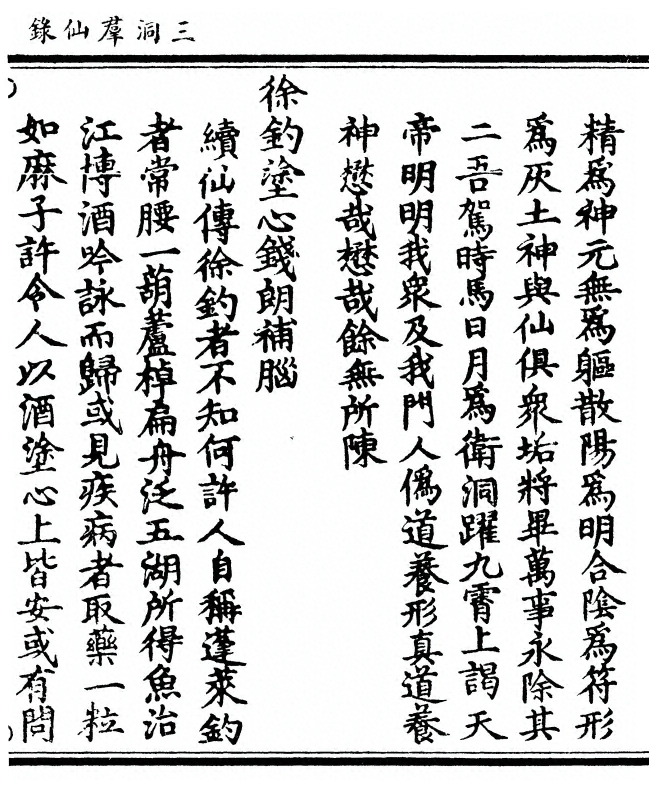 三洞羣仙錄
精爲神元無爲軀散陽爲明合陰爲符形
爲灰土神與仙俱衆垢將畢萬事永除其
二吾駕時馬日月爲衛洞躍九霄上謁天
帝明明我衆及我門人僞道養形真道養
神懋哉懋哉餘無所陳
徐釣塗心錢朗補腦
續仙傳徐釣者不知何許人自稱蓬萊釣
者常腰一葫蘆棹扁舟泛五湖所得魚治
江博酒吟詠而歸或見疾病者取藥一粒
如麻子許令人以酒塗心上皆安或有問